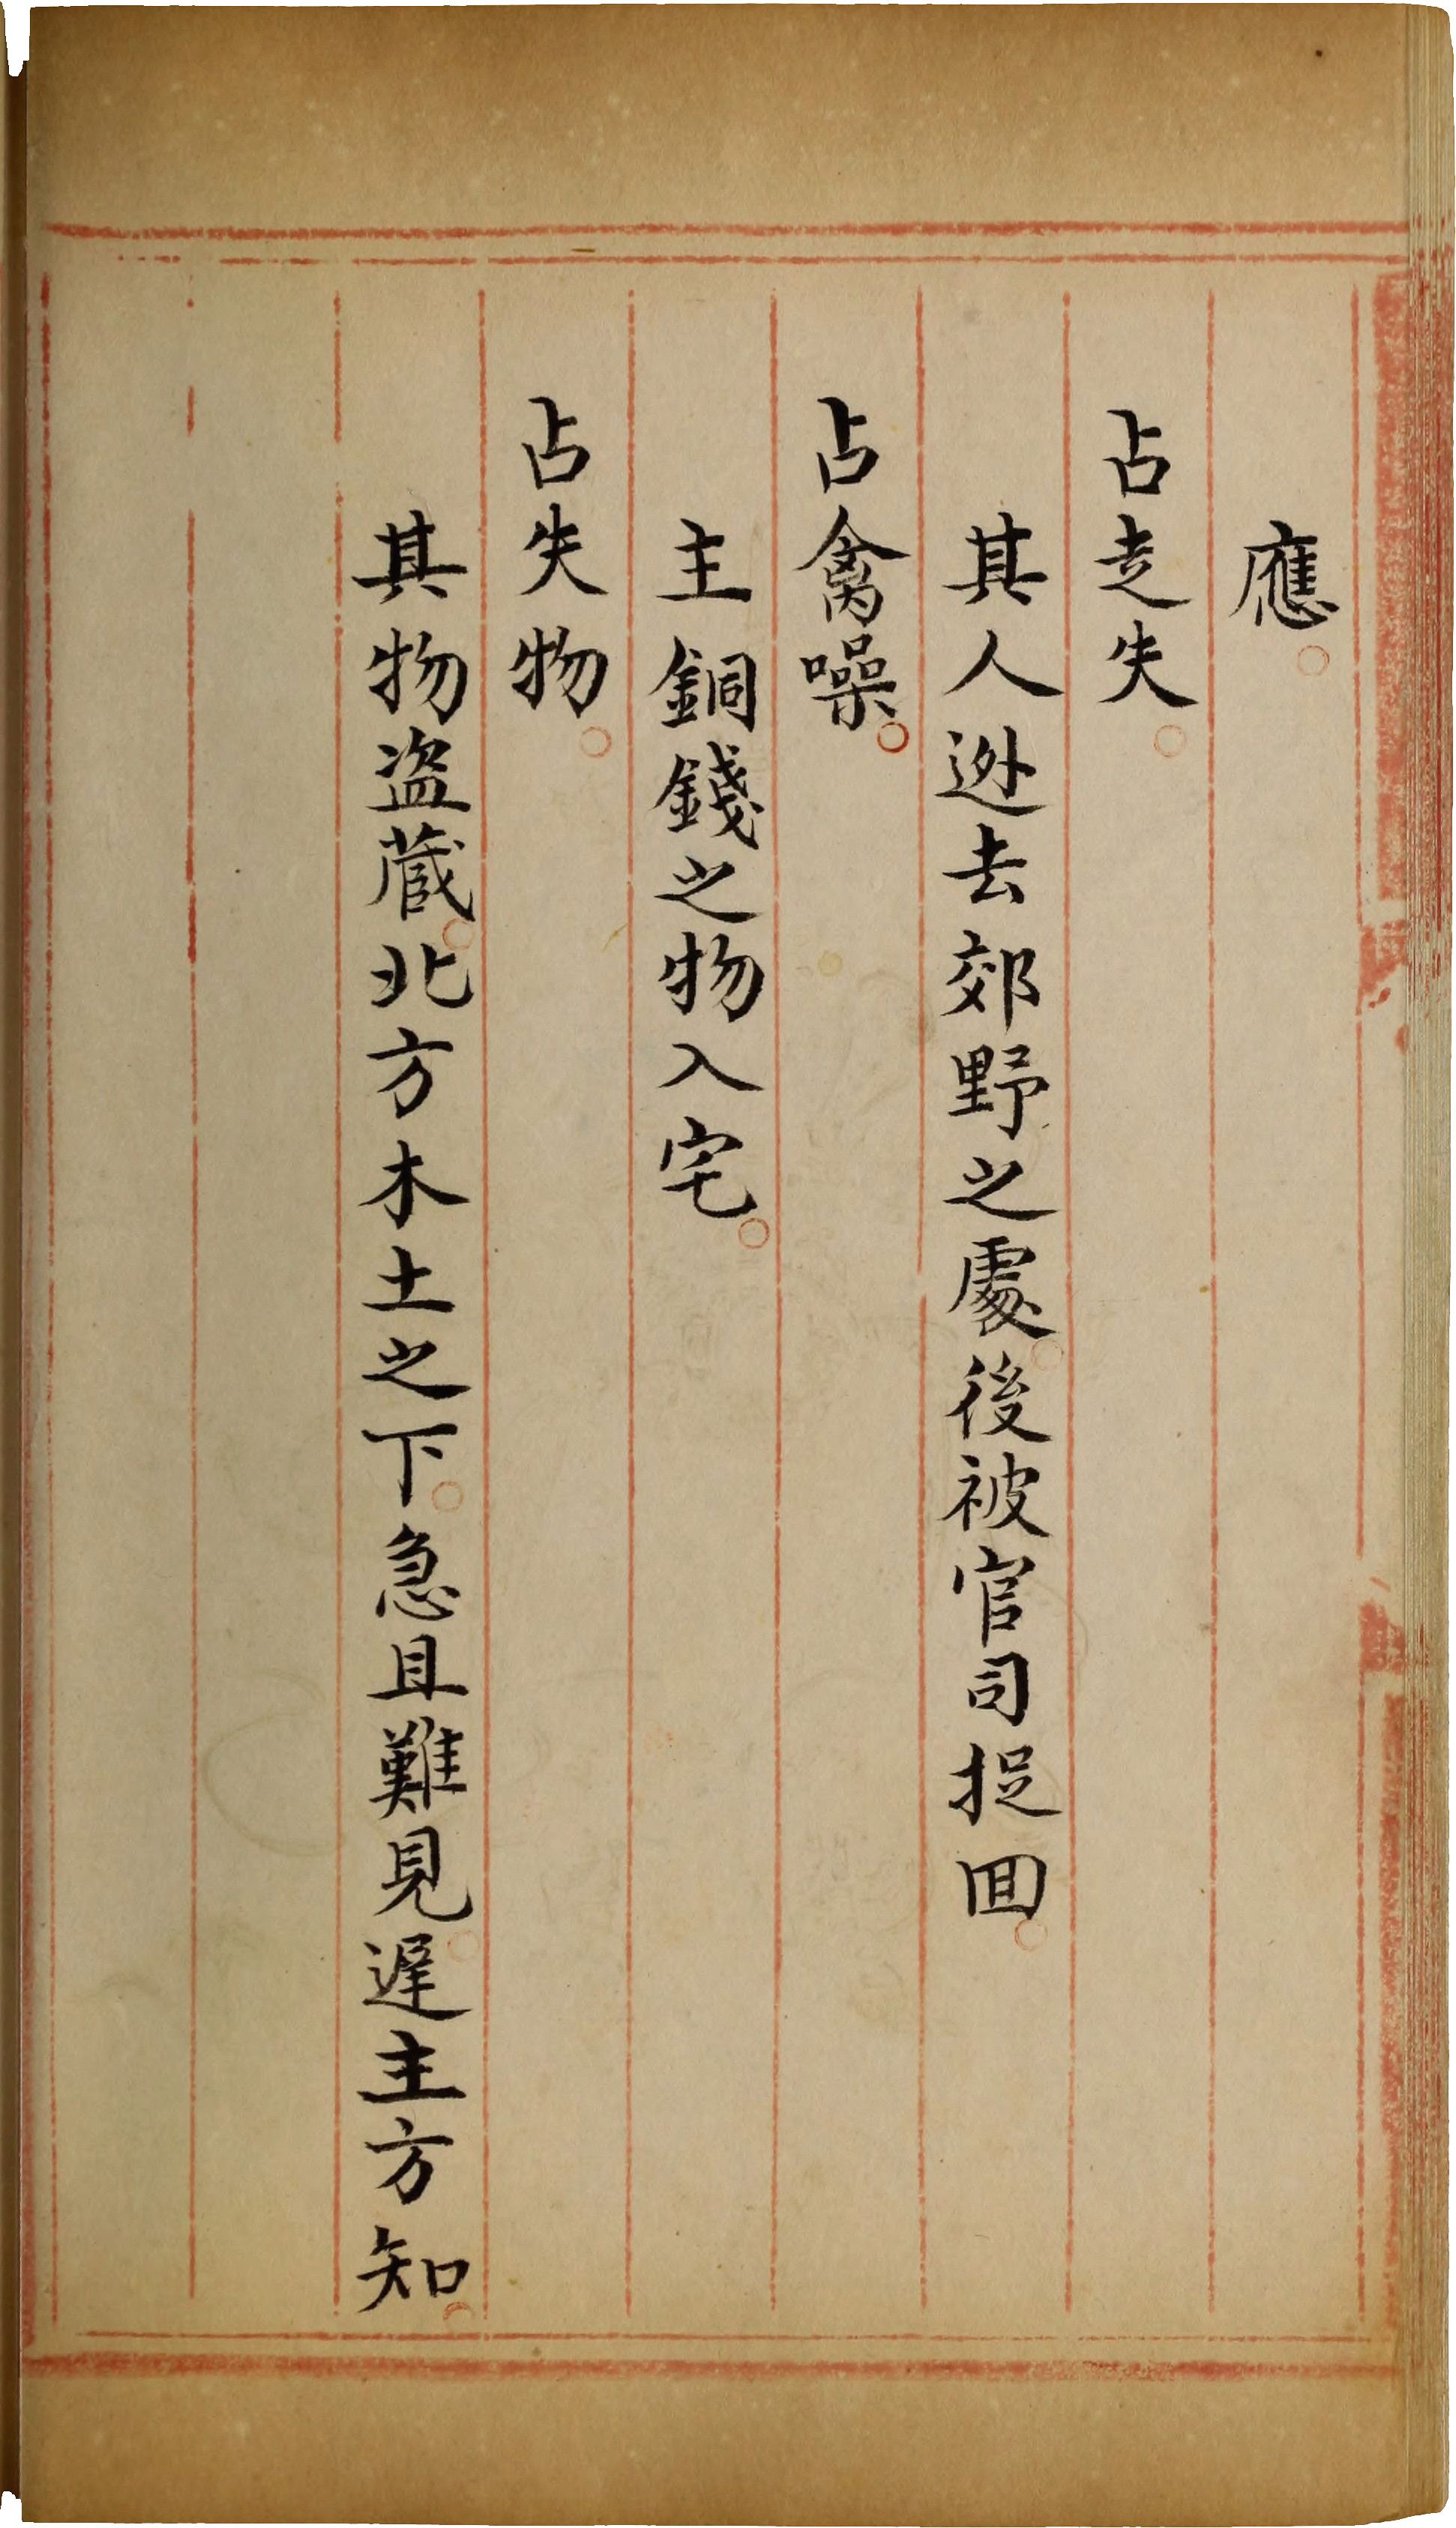 應。
占走失。
其人迯去郊野之處。後被官司捉囬。
占禽噪。
主銅錢之物入宅。
占失物。
其物盗蔵。北方木土之下。急且難見。遅主方知。